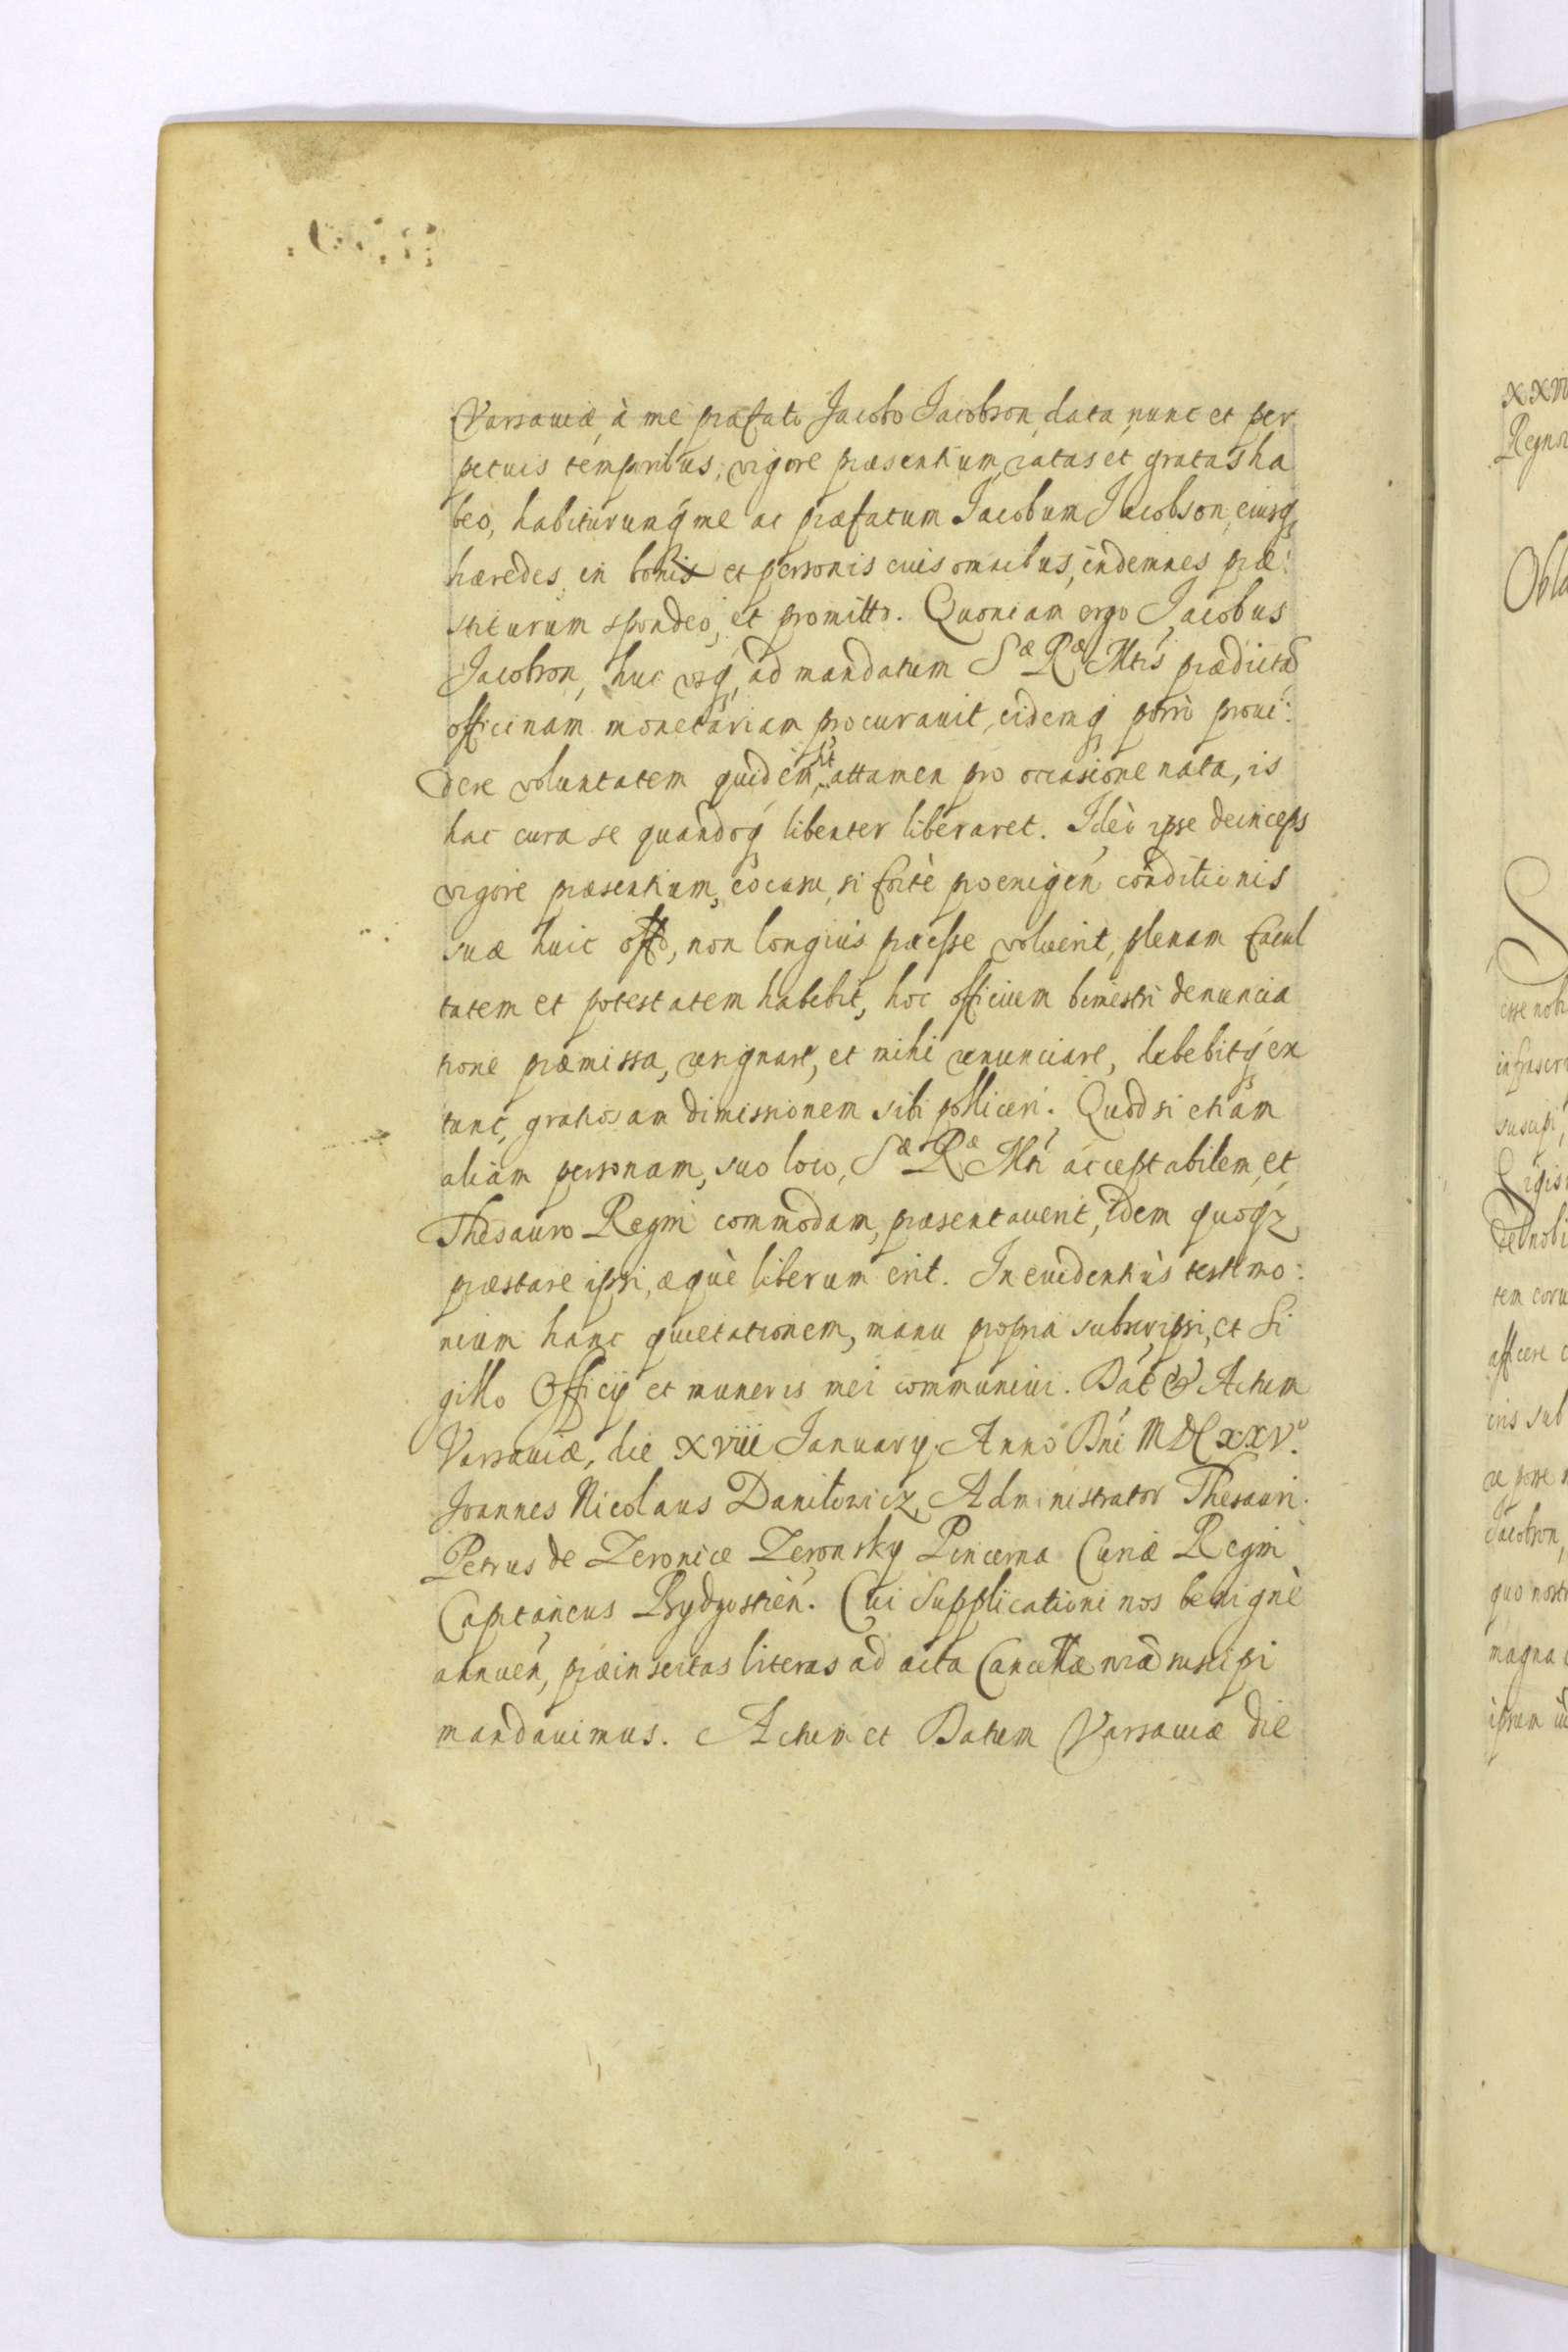 Varsauiæ, à me præfato Jacobo Jacobson, data, nunc et per
petuis temporibus, vigore præsentium, ratas et gratas ha
beo, habiturumq́ me ac præfatum Jacobum Jacobson, eiusq́
hæredes, in bonis et personis eius omnibus, indemnes præ:
stiturum spondeo, et promitto. Quoniam ergo Jacobus
Jacobson, huc usq́, ad mandatum Sæ Ræ Mtis prædictā
officinam monetariam procurauit, eidemq́ porrò proui:
dere voluntatem quidem, attamen pro occasione nata, is
hac cura se quandoq́ libenter liberaret. Ideò ipse deinceps
vigore præsentium, eo casu, si fortè conditionis
suæ huic offo, non longius præesse voluerit, plenam facul
tatem et potestatem habebit, hoc officium bimestri denuncia
tione præmissa, resignare, et mihi renunciare, debebitq́ ex
tunc, gratiosam dimissionem sibi polliceri. Quod si etiam
aliam personam, suo loco, Sæ Ræ Mti acceptabilem, et
Thesauro Regni commodam, præsentauerit, idem quoqz
præstare ipsi, æquè liberum erit. In euidentius testimo:
nium hanc quietationem, manu propria subscripsi, et Si
gillo Officij et muneris mei communiui. Dat & Actum
Varsauiæ, die xviii Januarij Anno Dni MDCXXV.º
Joannes Nicolaus Daniłowicz, Administrator Thesauri.
Petrus de Zeronice Zeronsky Pincerna Curiæ Regni
Capitaneus Bydgostień. Cui Supplicationi nos benignè
annueń, præinsertas literas ad acta Cancellæ nræ suscipi
mandauimus. Actum et Datum Varsauiæ die